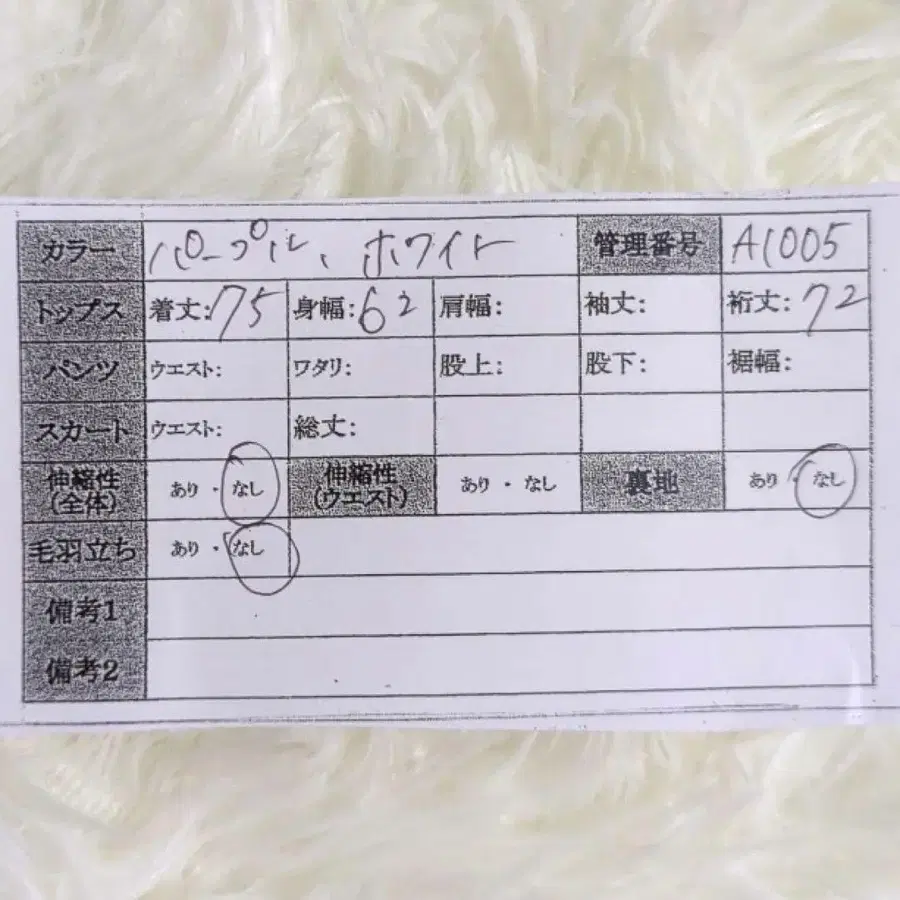 カラー パープル、ホワイト 管理番号 A1005
トップス 着丈:75 身幅:62 肩幅: 袖丈: 裄丈:72
パンツ ウエスト: ワタリ: 股上: 股下: 裾幅:
スカート ウエスト: 総丈:
伸縮性(全体) あり・なし 伸縮性(ウエスト) あり・なし 裏地 あり・なし
毛羽立ち あり・なし
備考1
備考2